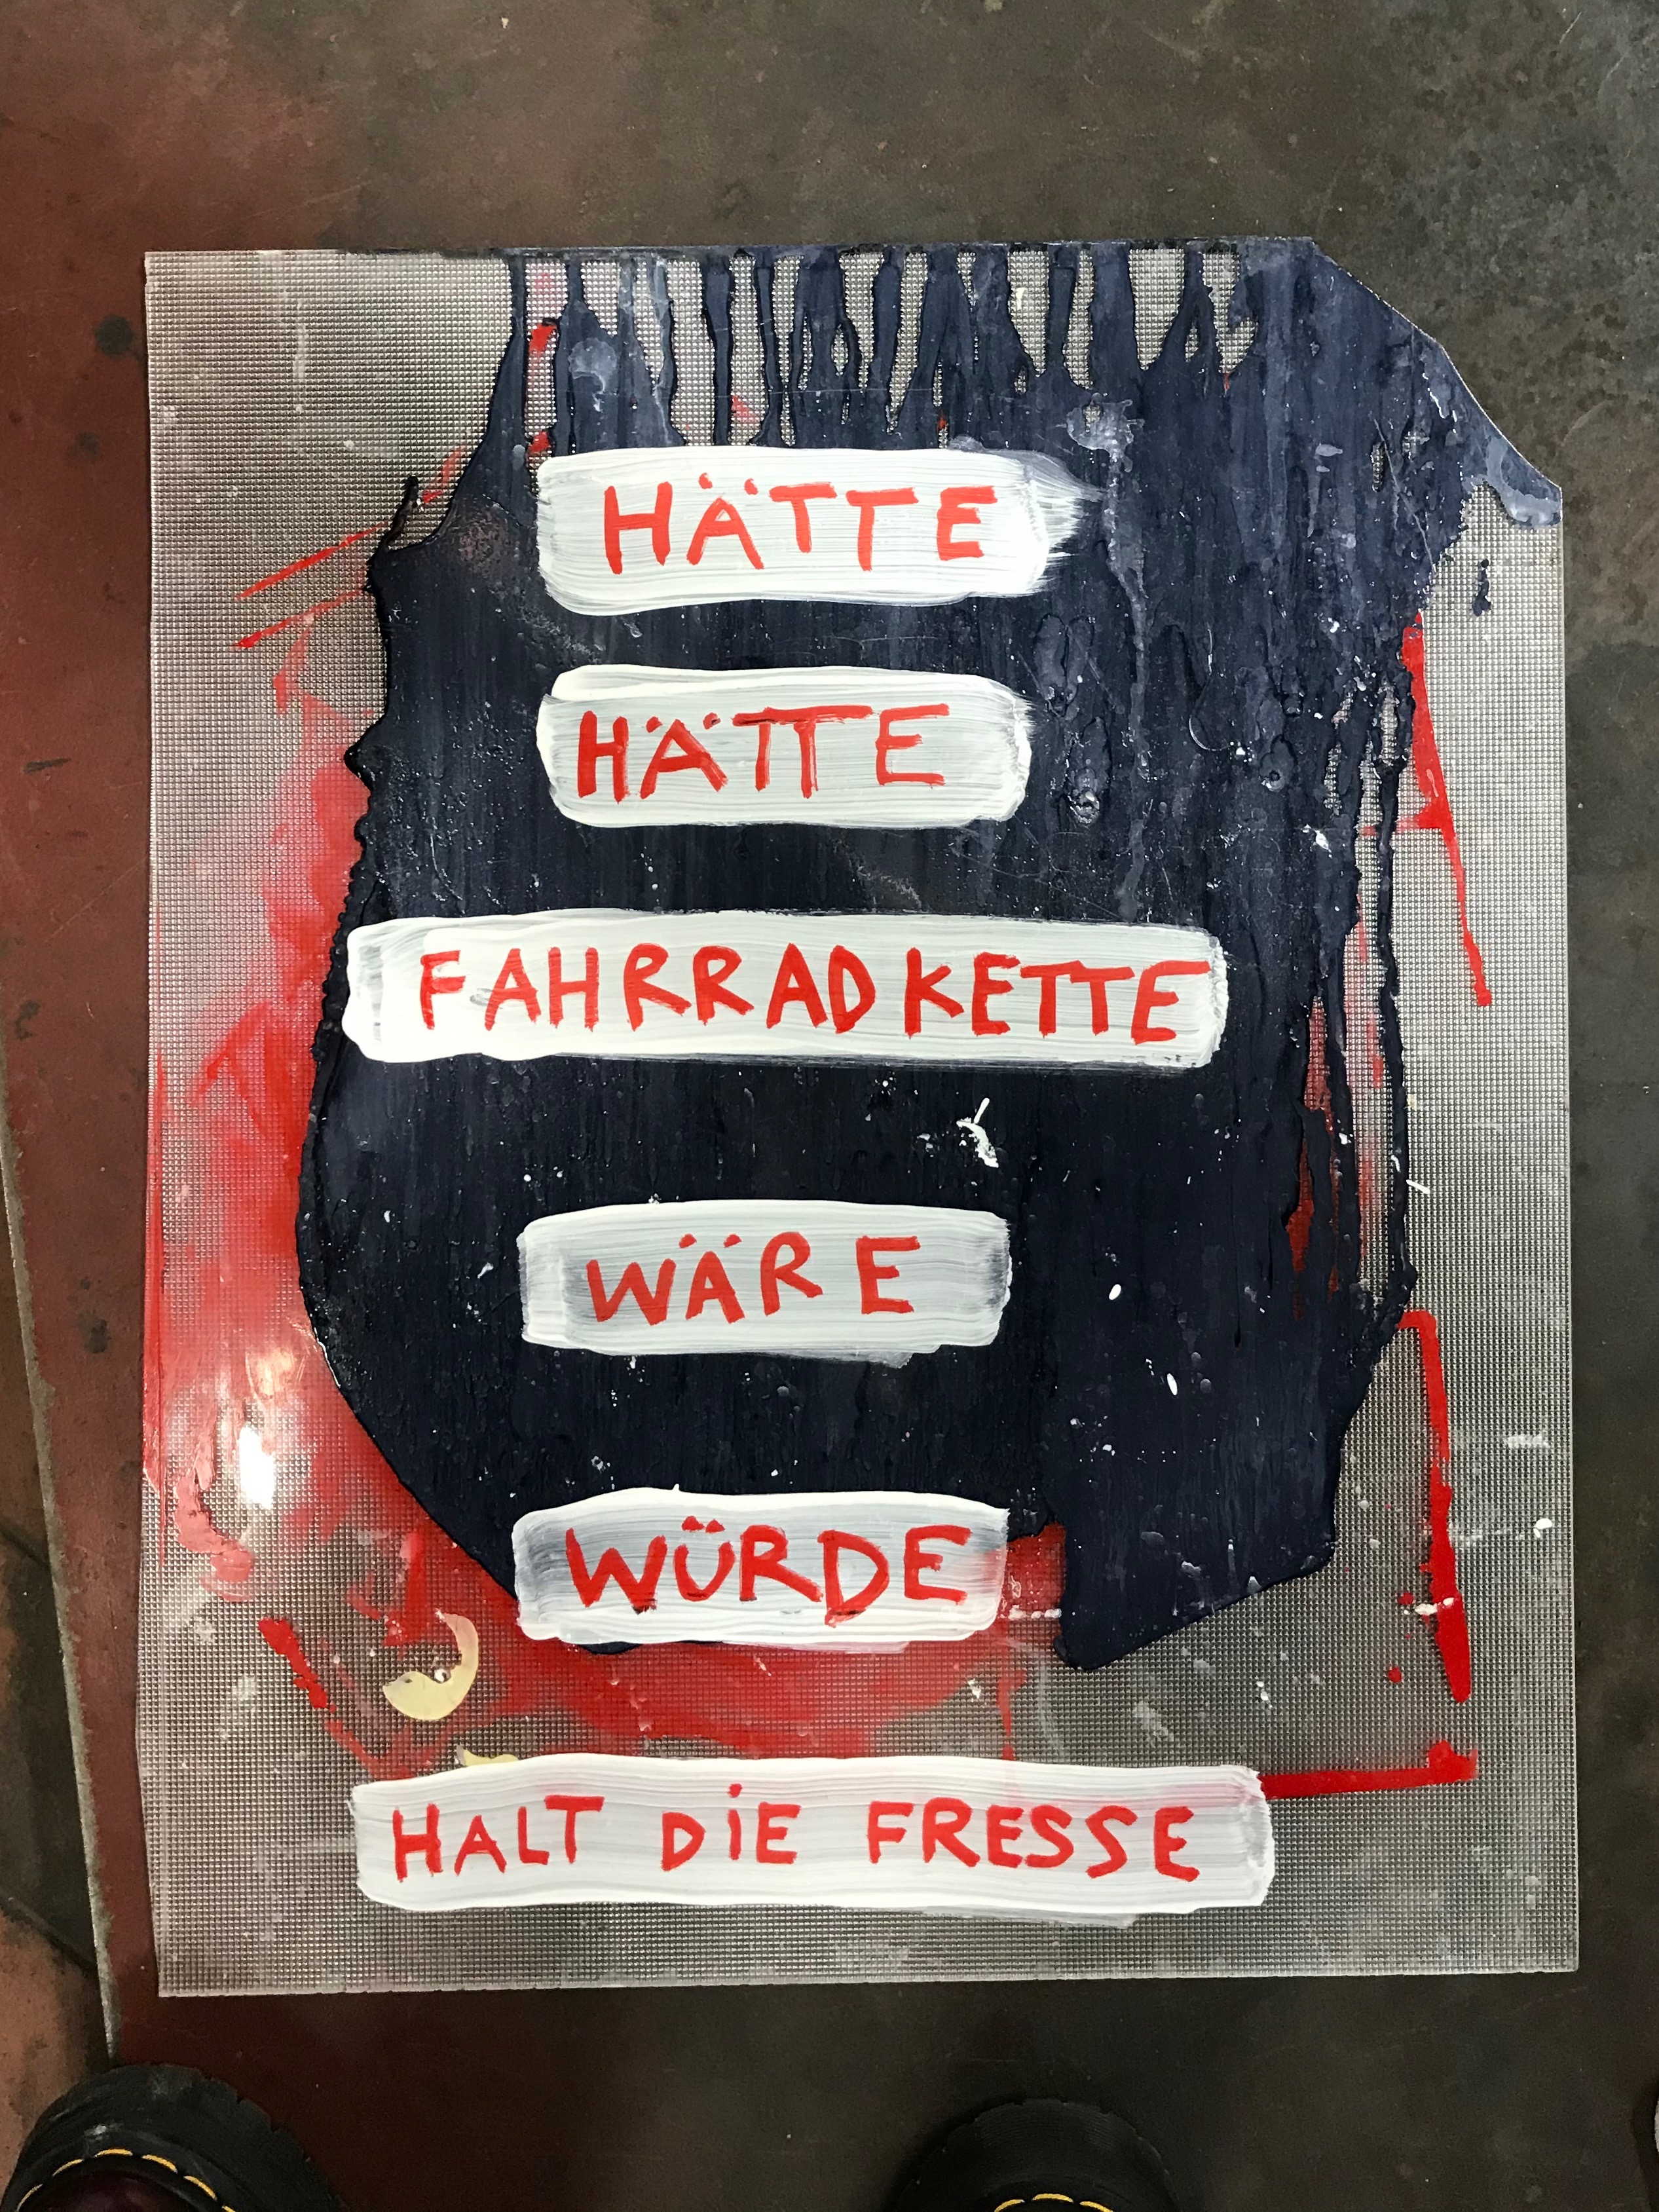 HÄTTE
HÄTTE
FAHRRADKETTE
WÄRE
WÜRDE
HALT DiE FRESSE